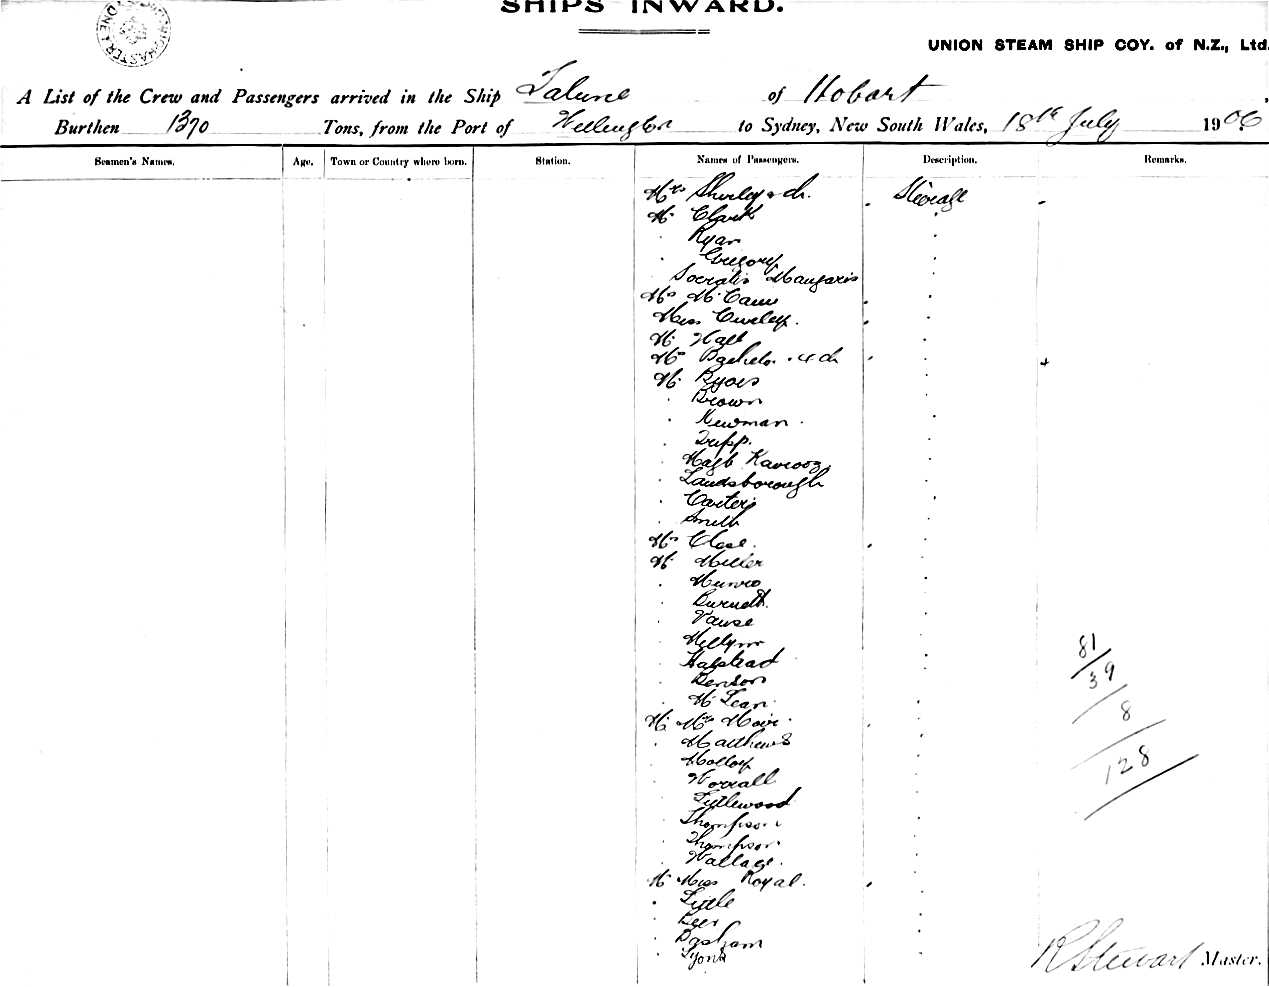 SHIPS INWARD.
UNION STEAM SHIP COY. of N.Z., Ltd.
A List of the Crew and Passengers arrived in the Ship Talune of Hobart,
Burthen 1370 Tons, from the Port of Wellington to Sydney, New South Wales, 18th July 1906
Seamen's Names. Age. Town or Country where born. Station. Names of Passengers. Description. Remarks.
Mrs Shirley & ch. Steerage
Mr Clark
Ryan
Gregory
Socratis Mangaris
Mrs McCann
Miss Curley.
Mr Hall
Mrs Bachelor & ch
Mr
Brown
Newman
Tripp.
Landsborough
Carter
Smith
Mrs Close.
Mr Miller
Munro
Burnett.
Vause
Halstead
Benson
McLean
Mr Mrs Moir
Matthews
Molloy
Worrall
Lytlewood
Thompson
Thompson
Wallace.
Mr Miss Royal.
Little
Beer
Basham
Lyons
81
39
8
128
R Stewart Master.